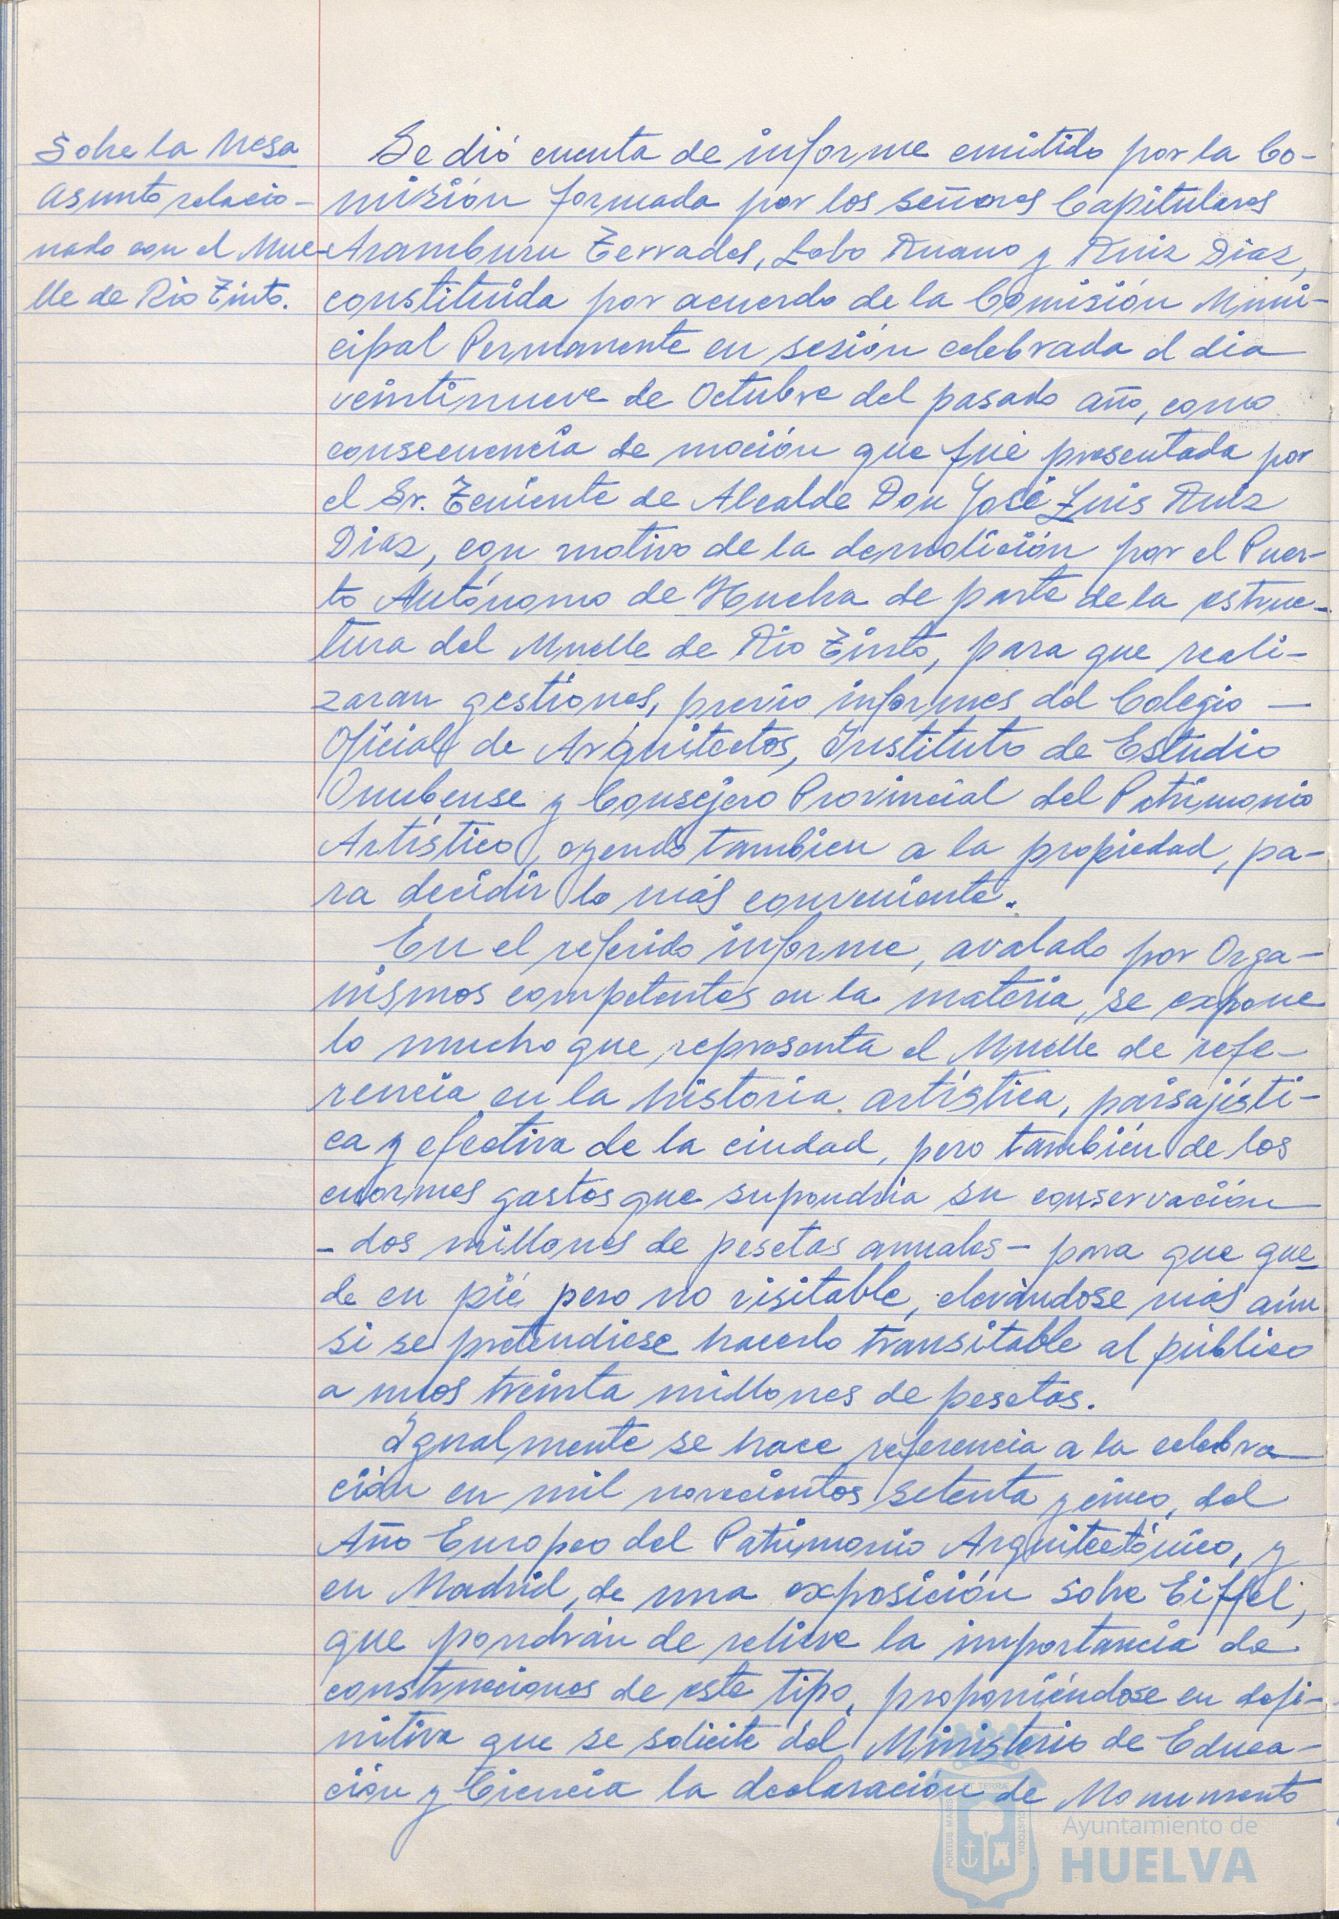 Sobre la Mesa
asunto relacio-
nado con el Mue-
lle de Rio Tinto.
Se dió cuenta de informe emitido por la Co-
misión formada por los señores Capitulares
Aramburu Terrades, Lobo Ruano y Ruiz Diaz,
constituida por acuerdo de la Comisión Muni-
cipal Permanente en sesión celebrada el dia
veintinueve de Octubre del pasado año, como
consecuencia de moción que fué presentada por
el Sr. Teniente de Alcalde Don José Luis Ruiz
Diaz, con motivo de la demolición por el Puer-
to Autónomo de Huelva de parte de la estruc-
tura del Muelle de Rio Tinto, para que reali-
zaran gestiones, previo informes del Colegio —
Oficial de Arquitectos, Instituto de Estudio
Onubense y Consejero Provincial del Patrimonio
Artístico, oyendo tambien a la propiedad, pa-
ra decidir lo más conveniente.
En el referido informe, avalado por Orga-
nismos competentes en la materia, se expone
lo mucho que representa el Muelle de refe-
rencia en la historia artística, paisajísti-
ca y efectiva de la ciudad, pero también de los
enormes gastos que supondria su conservación
- dos millones de pesetas anuales - para que que
de en pié pero no visitable, elevándose más aún
si se pretendiese hacerlo transitable al público
a unos treinta millones de pesetas.
Igualmente se hace referencia a la celebra
ción en mil novecientos setenta y cinco, del
Año Europeo del Patrimonio Arquitectónico, y
en Madrid, de una exposición sobre Eiffel,
que pondrán de relieve la importancia de
construcciones de este tipo, proponiéndose en defi-
nitiva que se solicite del Ministerio de Educa-
ción y Ciencia la declaración de Monumento
PORTUS MARIS ET TERRAE CUSTODIA
Ayuntamiento de
HUELVA